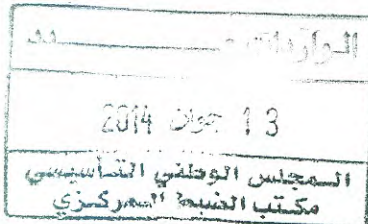 الواردات عـــــدد
13 جوان 2014
المجلس الوطني التأسيسي
مكتب الضبط المركزي